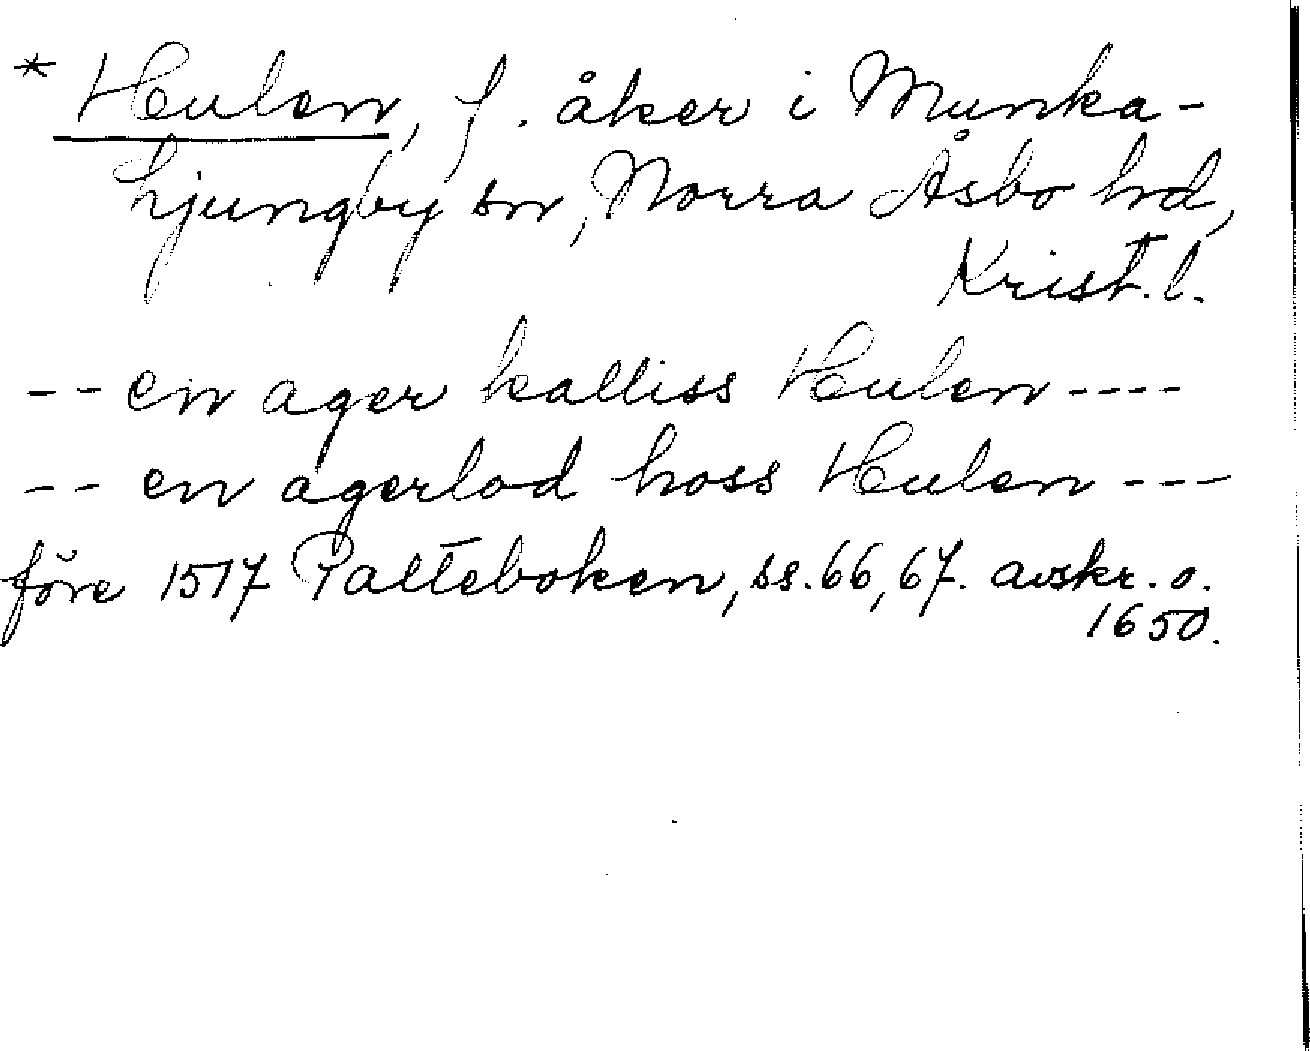 * Hulen, f. åker i Munka-
Ljungby sn, Norra Åsbo hd,
Krist. l.
-- en ager kalliss Hulen ----
-- en agerlod hoss Hulen ---
före 1517 Palteboken, ss. 66, 67. avskr. o.
1650.